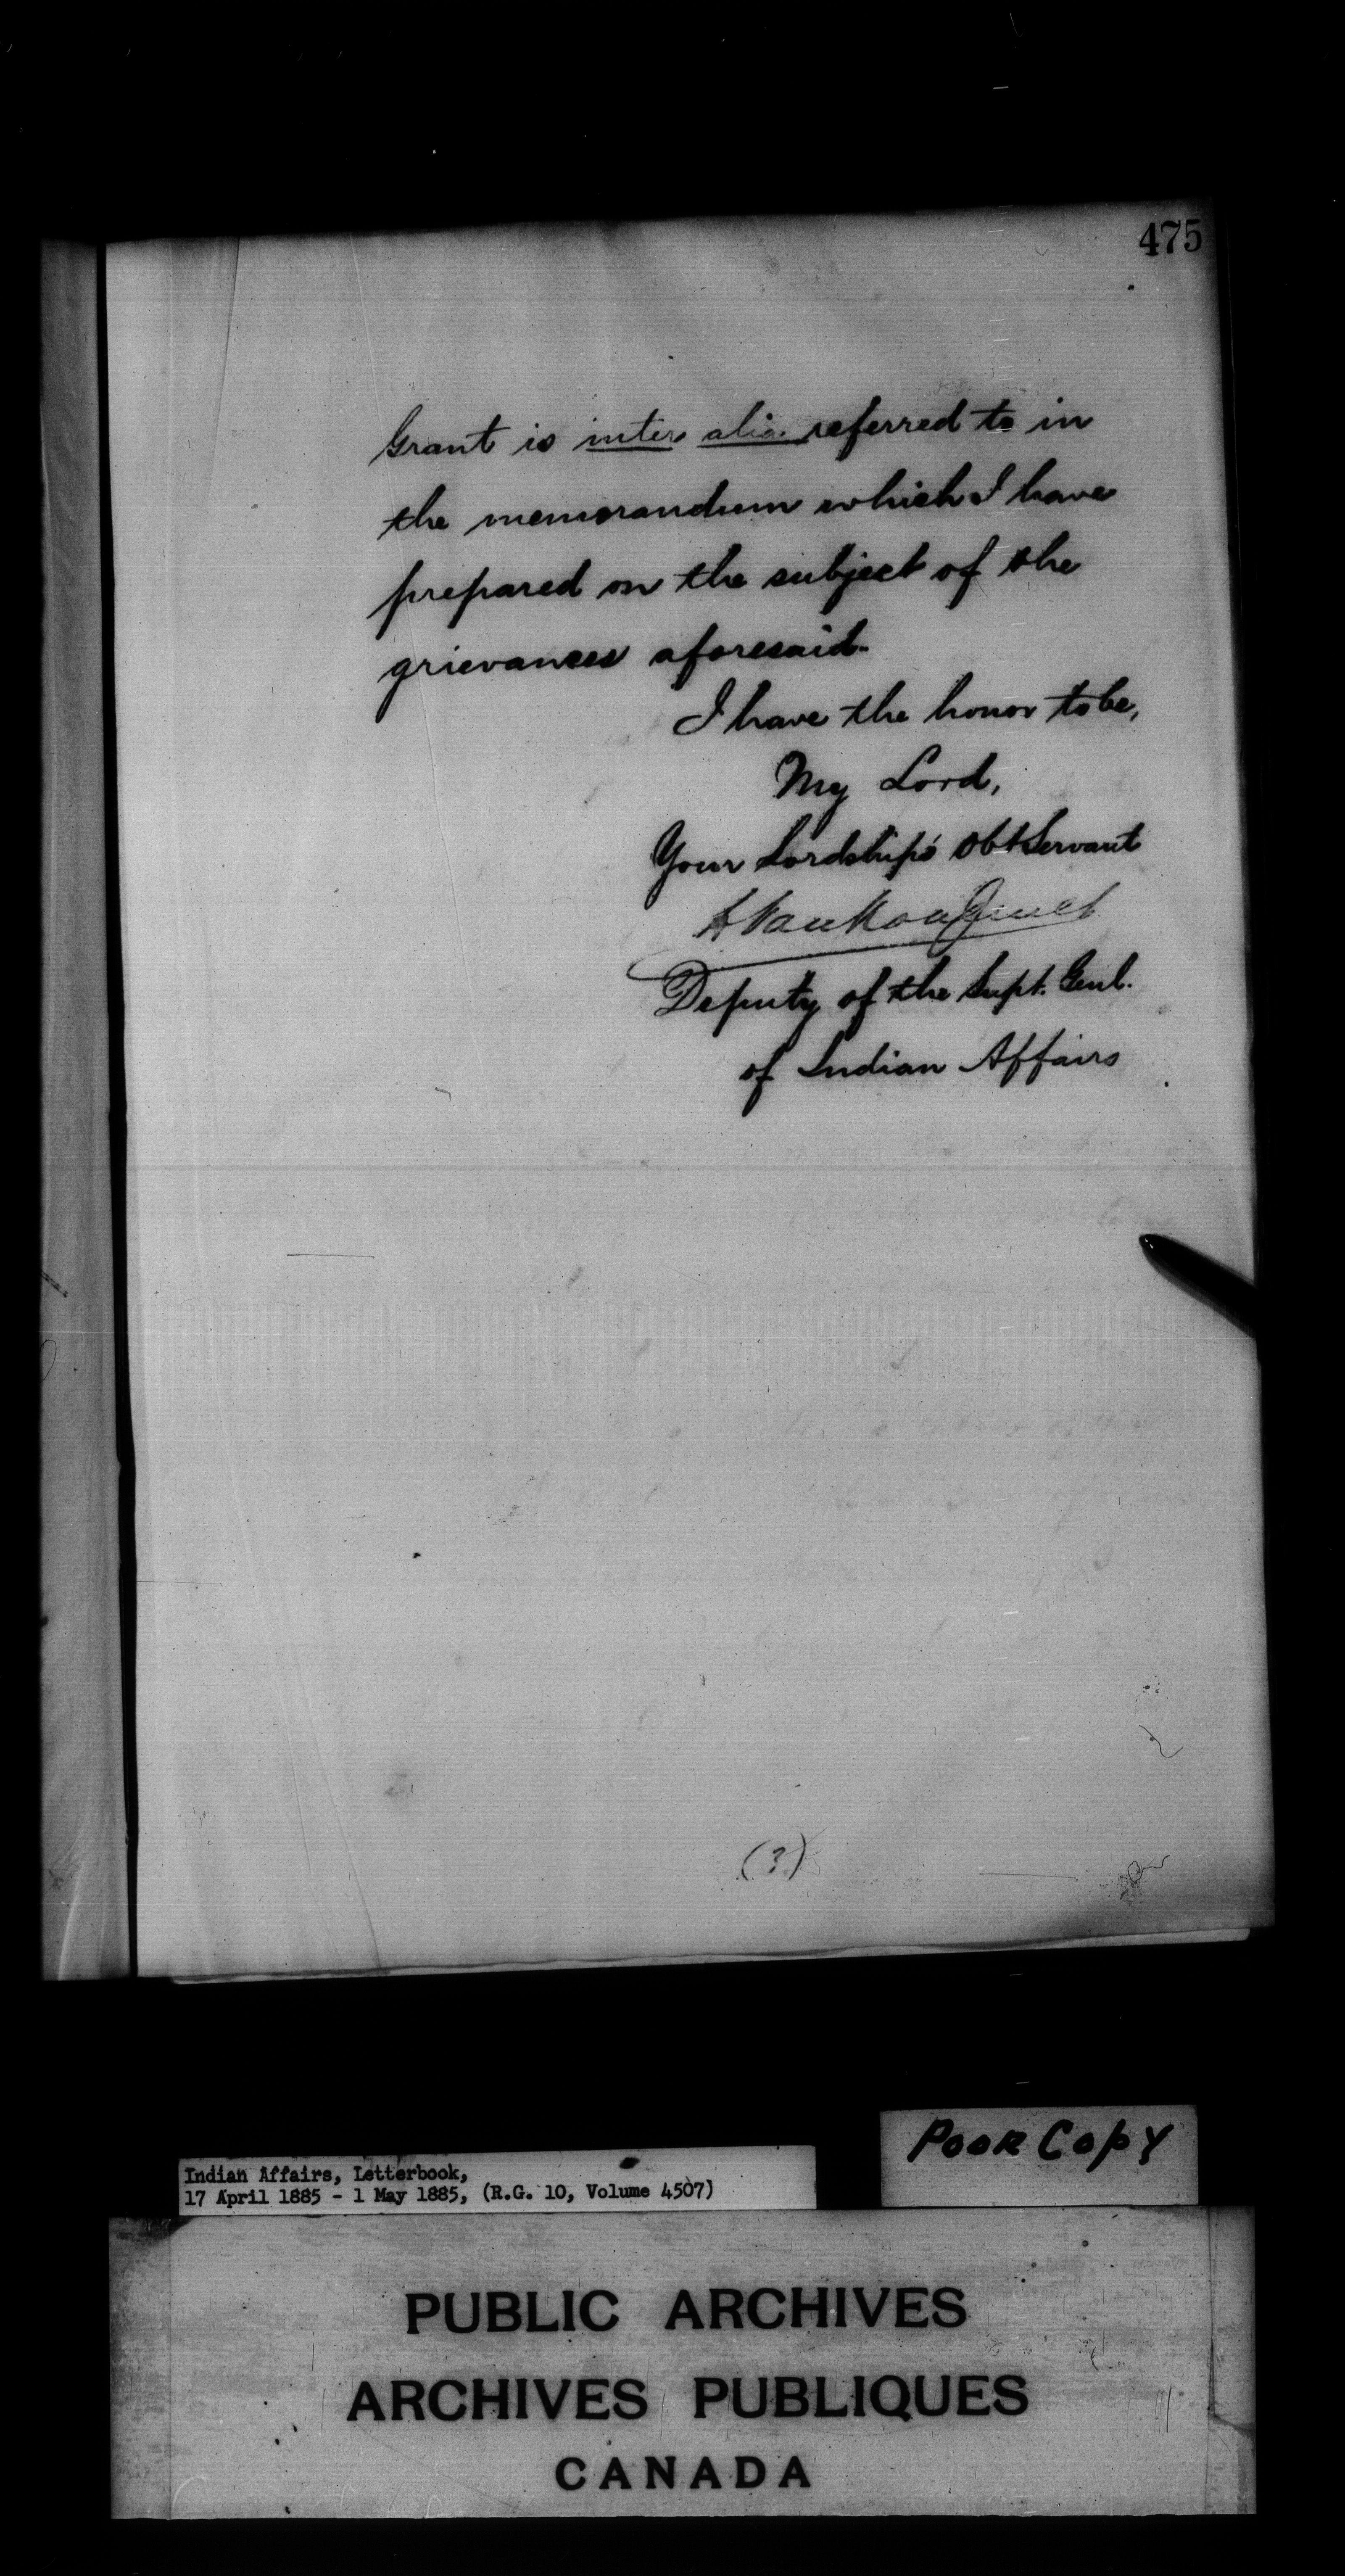 475
Grant is inter alia referred to in
the memorandum which I have
prepared on the subject of the
grievances aforesaid.
I have the honor to be,
My Lord,
Your Lordship's Obt Servant
L VanKoughnet
Deputy of the Supt. Genl.
of Indian Affairs
(3)
Poor Copy
Indian Affairs, Letterbook,
17 April 1885 - 1 May 1885, (R.G. 10, Volume 4507)
PUBLIC ARCHIVES
ARCHIVES PUBLIQUES
CANADA